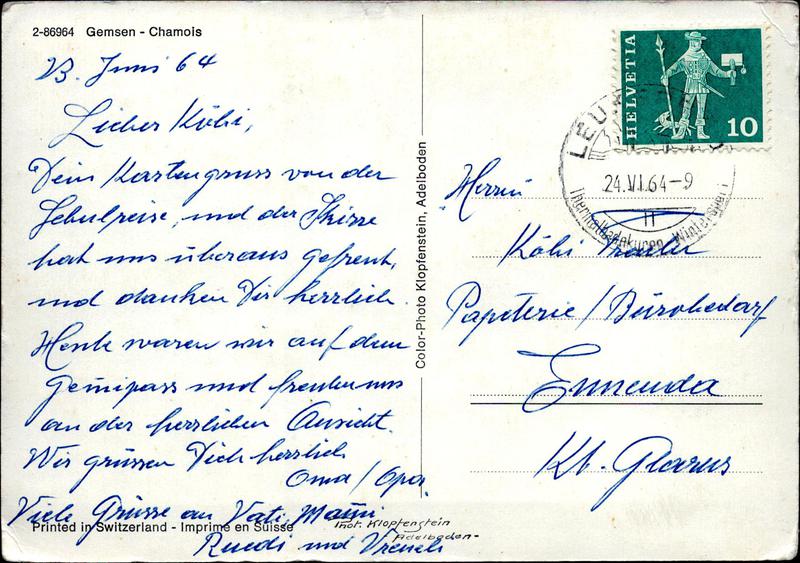 2-86964 Gemsen - Chamois
23. Juni 64
Lieber Köbi,
Dein Kartengruss von der
Schulreise, und der Skizze
hat uns überaus gefreut,
und danken Dir herzlich.
Heute waren wir auf dem
Gemmipass und freuten uns
an der herrlichen Aussicht.
Wir grüssen Dich herzlich
Oma/Opa.
Viele Grüsse an Vati, Mammi
Ruedi und Vreneli
Printed in Switzerland - Imprime en Suisse
Phot. Klopfenstein
Adelboden-
Color-Photo Klopfenstein, Adelboden
HELVETIA
10
LEUK
24.VI.64-9
Thermalbadekuren Wintersport
Herrn
Köbi
Papeterie/Bürobedarf
Ennenda
Kt. Glarus